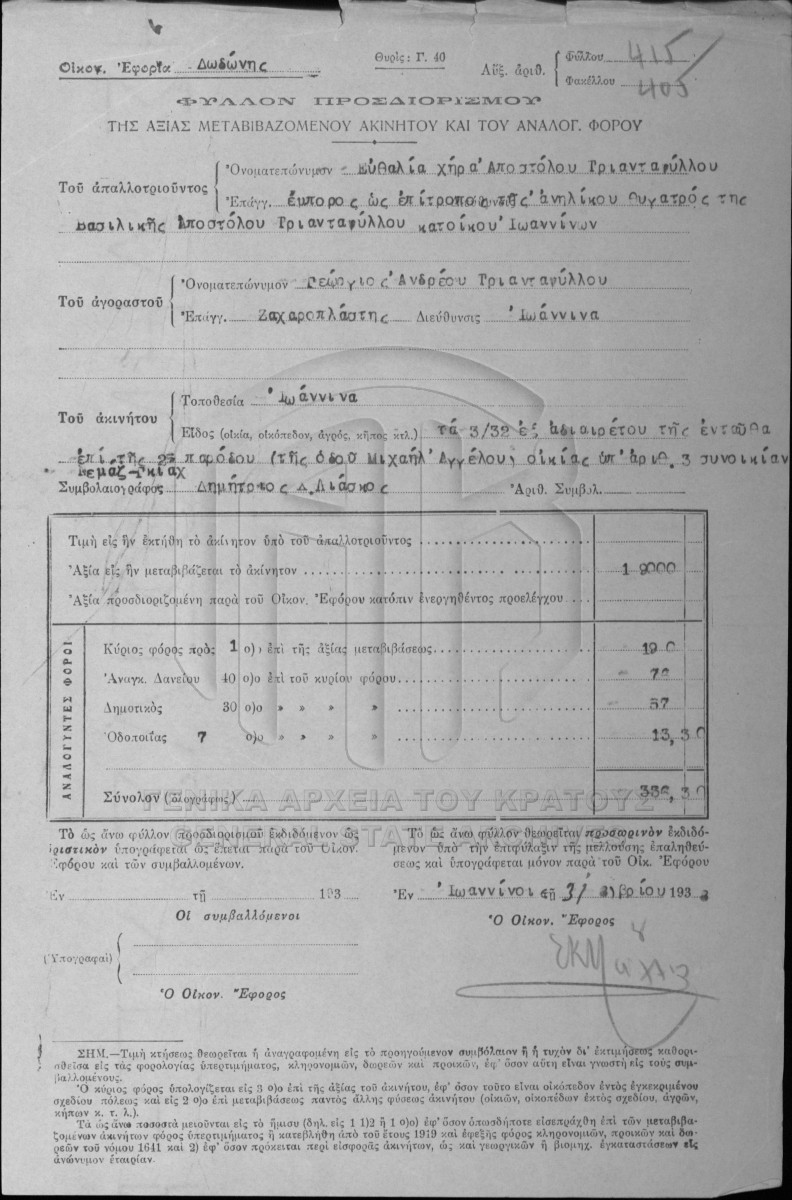 Οἰκον. Ἐφορία Δωδώνης
Θυρίς: Γ. 40
Αὔξ. ἀριθ. Φύλλου 415/
Φακέλλου 405
ΦΥΛΛΟΝ ΠΡΟΣΔΙΟΡΙΣΜΟΥ
ΤΗΣ ΑΞΙΑΣ ΜΕΤΑΒΙΒΑΖΟΜΕΝΟΥ ΑΚΙΝΗΤΟΥ ΚΑΙ ΤΟΥ ΑΝΑΛΟΓ. ΦΟΡΟΥ
Τοῦ ἀπαλλοτριοῦντος
Ὀνοματεπώνυμον Εὐθαλία χήρα Ἀποστόλου Τριανταφύλλου
Ἐπάγγ. ἔμπορος ὡς ἐπίτροπος τῆς ἀνηλίκου θυγατρός της
Βασιλικῆς Ἀποστόλου Τριανταφύλλου κατοίκου Ἰωαννίνων
Τοῦ ἀγοραστοῦ
Ὀνοματεπώνυμον Γεώργιος Ἀνδρέου Τριανταφύλλου
Ἐπάγγ. Ζαχαροπλάστης Διεύθυνσις Ἰωάννινα
Τοῦ ἀκινήτου
Τοποθεσία Ἰωάννινα
Εἶδος (οἰκία, οἰκόπεδον, ἀγρός, κῆπος κτλ.) τά 3/32 ἐξ ἀδιαιρέτου τῆς ἐνταῦθα
ἐπί τῆς παρόδου (τῆς ὁδοῦ Μιχαήλ Ἀγγέλου) οἰκίας ὑπ' ἀριθ. 3 συνοικίαν
Νεμαζ-Γκιάχ
Συμβολαιογράφος Δημήτριος Δ. Λιάσκος Ἀριθ. Συμβολ.
Τιμὴ εἰς ἣν ἐκτήθη τὸ ἀκίνητον ὑπὸ τοῦ ἀπαλλοτριοῦντος
Ἀξία εἰς ἣν μεταβιβάζεται τὸ ἀκίνητον 19000
Ἀξία προσδιοριζομένη παρὰ τοῦ Οἰκον. Ἐφόρου κατόπιν ἐνεργηθέντος προελέγχου
ΑΝΑΛΟΓΟΥΝΤΕΣ ΦΟΡΟΙ
Κύριος φόρος πρὸς 1 ο)ο ἐπὶ τῆς ἀξίας μεταβιβάσεως 190
Ἀναγκ. Δανείου 40 ο)ο ἐπὶ τοῦ κυρίου φόρου 76
Δημοτικὸς 30 ο)ο » » » 57
Ὁδοποιΐας 7 ο)ο » » » 13,30
Σύνολον (ὁλογράφως) 336,30
ΓΕΝΙΚΑ ΑΡΧΕΙΑ ΤΟΥ ΚΡΑΤΟΥΣ
Τὸ ὡς ἄνω φύλλον προσδιορισμοῦ ἐκδιδόμενον ὡς
ὁριστικὸν ὑπογράφεται ὡς ἕπεται παρὰ τοῦ Οἰκον.
Ἐφόρου καὶ τῶν συμβαλλομένων.
Ἐν τῇ 193
Οἱ συμβαλλόμενοι
(Ὑπογραφαί)
Ὁ Οἰκον. Ἔφορος
Τὸ ὡς ἄνω φύλλον θεωρεῖται προσωρινὸν ἐκδιδό-
μενον ὑπὸ τὴν ἐπιφύλαξιν τῆς μελλούσης ἐπαληθεύ-
σεως καὶ ὑπογράφεται μόνον παρὰ τοῦ Οἰκ. Ἐφόρου
Ἐν Ἰωαννίνοι τῇ 31 βρίου 193
Ὁ Οἰκον. Ἔφορος
ΣΗΜ.—Τιμὴ κτήσεως θεωρεῖται ἡ ἀναγραφομένη εἰς τὸ προηγούμενον συμβόλαιον ἢ ἡ τυχὸν δι' ἐκτιμήσεως καθορι-
σθεῖσα εἰς τὰς φορολογίας ὑπερτιμήματος, κληρονομιῶν, δωρεῶν καὶ προικῶν, ἐφ' ὅσον αὕτη εἶναι γνωστὴ εἰς τοὺς συμ-
βαλλομένους.
Ὁ κύριος φόρος ὑπολογίζεται εἰς 3 ο)ο ἐπὶ τῆς ἀξίας τοῦ ἀκινήτου, ἐφ' ὅσον τοῦτο εἶναι οἰκόπεδον ἐντὸς ἐγκεκριμένου
σχεδίου πόλεως καὶ εἰς 2 ο)ο ἐπὶ μεταβιβάσεως παντὸς ἄλλης φύσεως ἀκινήτου (οἰκιῶν, οἰκοπέδων ἐκτὸς σχεδίου, ἀγρῶν,
κήπων κ. τ. λ.).
Τὰ ὡς ἄνω ποσοστὰ μειοῦνται εἰς τὸ ἥμισυ (δηλ. εἰς 1 1)2 ἢ 1 ο)ο) ἐφ' ὅσον ὁπωσδήποτε εἰσεπράχθη ἐπὶ τῶν μεταβιβα-
ζομένων ἀκινήτων φόρος ὑπερτιμήματος ἢ κατεβλήθη ἀπὸ τοῦ ἔτους 1919 καὶ ἐφεξῆς φόρος κληρονομιῶν, προικῶν καὶ δω-
ρεῶν τοῦ νόμου 1641 καὶ 2) ἐφ' ὅσον πρόκειται περὶ εἰσφορᾶς ἀκινήτων, ὡς καὶ γεωργικῶν ἢ βιομηχ. ἐγκαταστάσεων εἰς
ἀνώνυμον ἑταιρίαν.